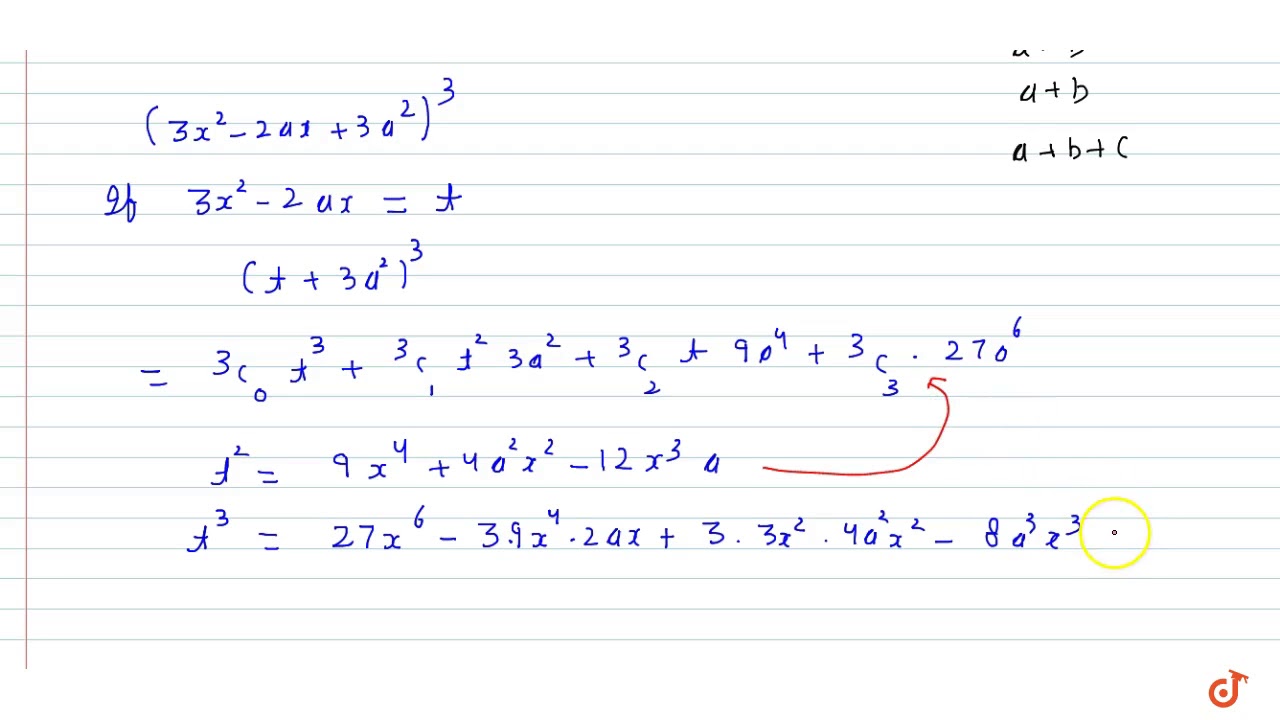 a + b
a + b + c
(3x² - 2ax + 3a²)³
If 3x² - 2ax = t
(t + 3a²)³
= ³C₀ t³ + ³C₁ t² 3a² + ³C₂ t 9a⁴ + ³C₃ · 27a⁶
t² = 9x⁴ + 4a²x² - 12x³ a
t³ = 27x⁶ - 3.9x⁴ · 2ax + 3 · 3x² · 4a²x² - 8a³x³